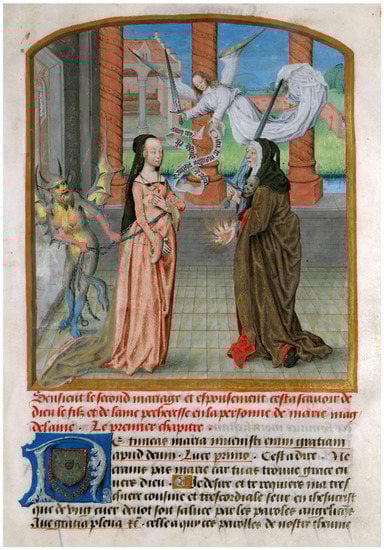 Sensieut le second mariage et espousement cestassavoir de
dieu le filz et de lame pecheresse en la personne de marie mag
delaine. Le premier chapitre.
Ne timeas maria invenisti enim gratiam
apud deum. Luce primo. C'est a dire. Ne
craime pas marie car tu as trouve grace en
vers dieu. Je desire et requiers ma tres
chiere cousine et trescordiale seur en jhesucrist
que de vray cuer devot soit saluee par les paroles angeliques
Ave gratia plena &c. celle a qui ces paroles de nostre theume